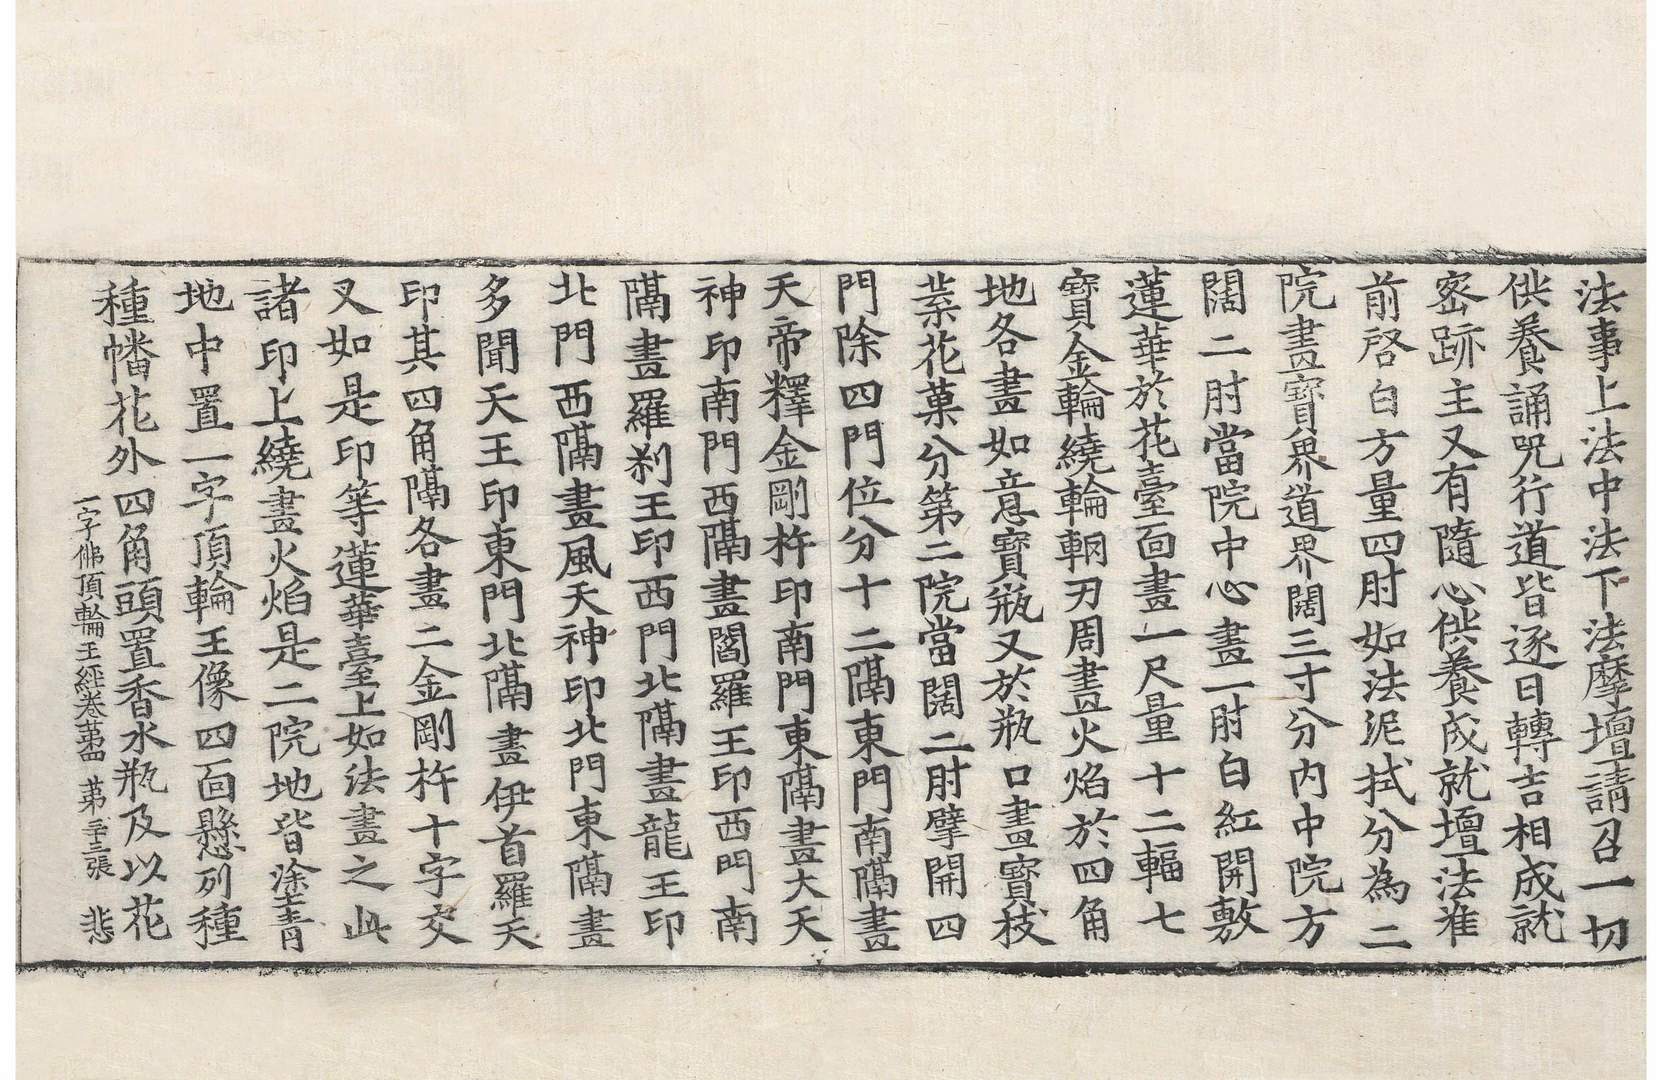 法事上法中法下法摩壇請召一切
供養誦呪行道皆逐日轉吉相成就
宻跡主又有隨心供養成就壇法准
前啓白方量四肘如法泥拭分為二
院畫寶界道界闊三寸分内中院方
闊二肘當院中心畫一肘白紅開敷
蓮華於花臺面畫一尺量十二輻七
寶金輪繞輪輞刃周畫火焰於四角
地各畫如意寶瓶又於瓶口畫寶枝
葉花菓分第二院當闊二肘擘開四
門除四門位分十二隔東門南隔畫
天帝釋金剛杵印南門東隔畫大天
神印南門西隔畫閻羅王印西門南
隔畫羅刹王印西門北隔畫龍王印
北門西隔畫風天神印北門東隔畫
多聞天王印東門北隔畫伊首羅天
印其四角隔各畫二金剛杵十字交
叉如是印等蓮華臺上如法畫之此
諸印上繞畫火焰是二院地皆塗青
地中置一字頂輪王像四面懸列種
種幡花外四角頭置香水瓶及以花
一字佛頂輪王經卷苐四 苐三張 悲